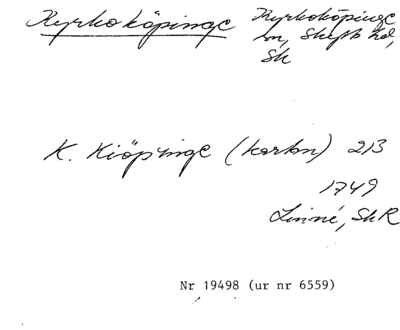 Kyrkoköpinge Kyrkoköpinge
sn, Skytts hd,
Sk
K. Kiöpinge (kartan) 213
1749
Linné, SkR
Nr 19498 (ur nr 6559)